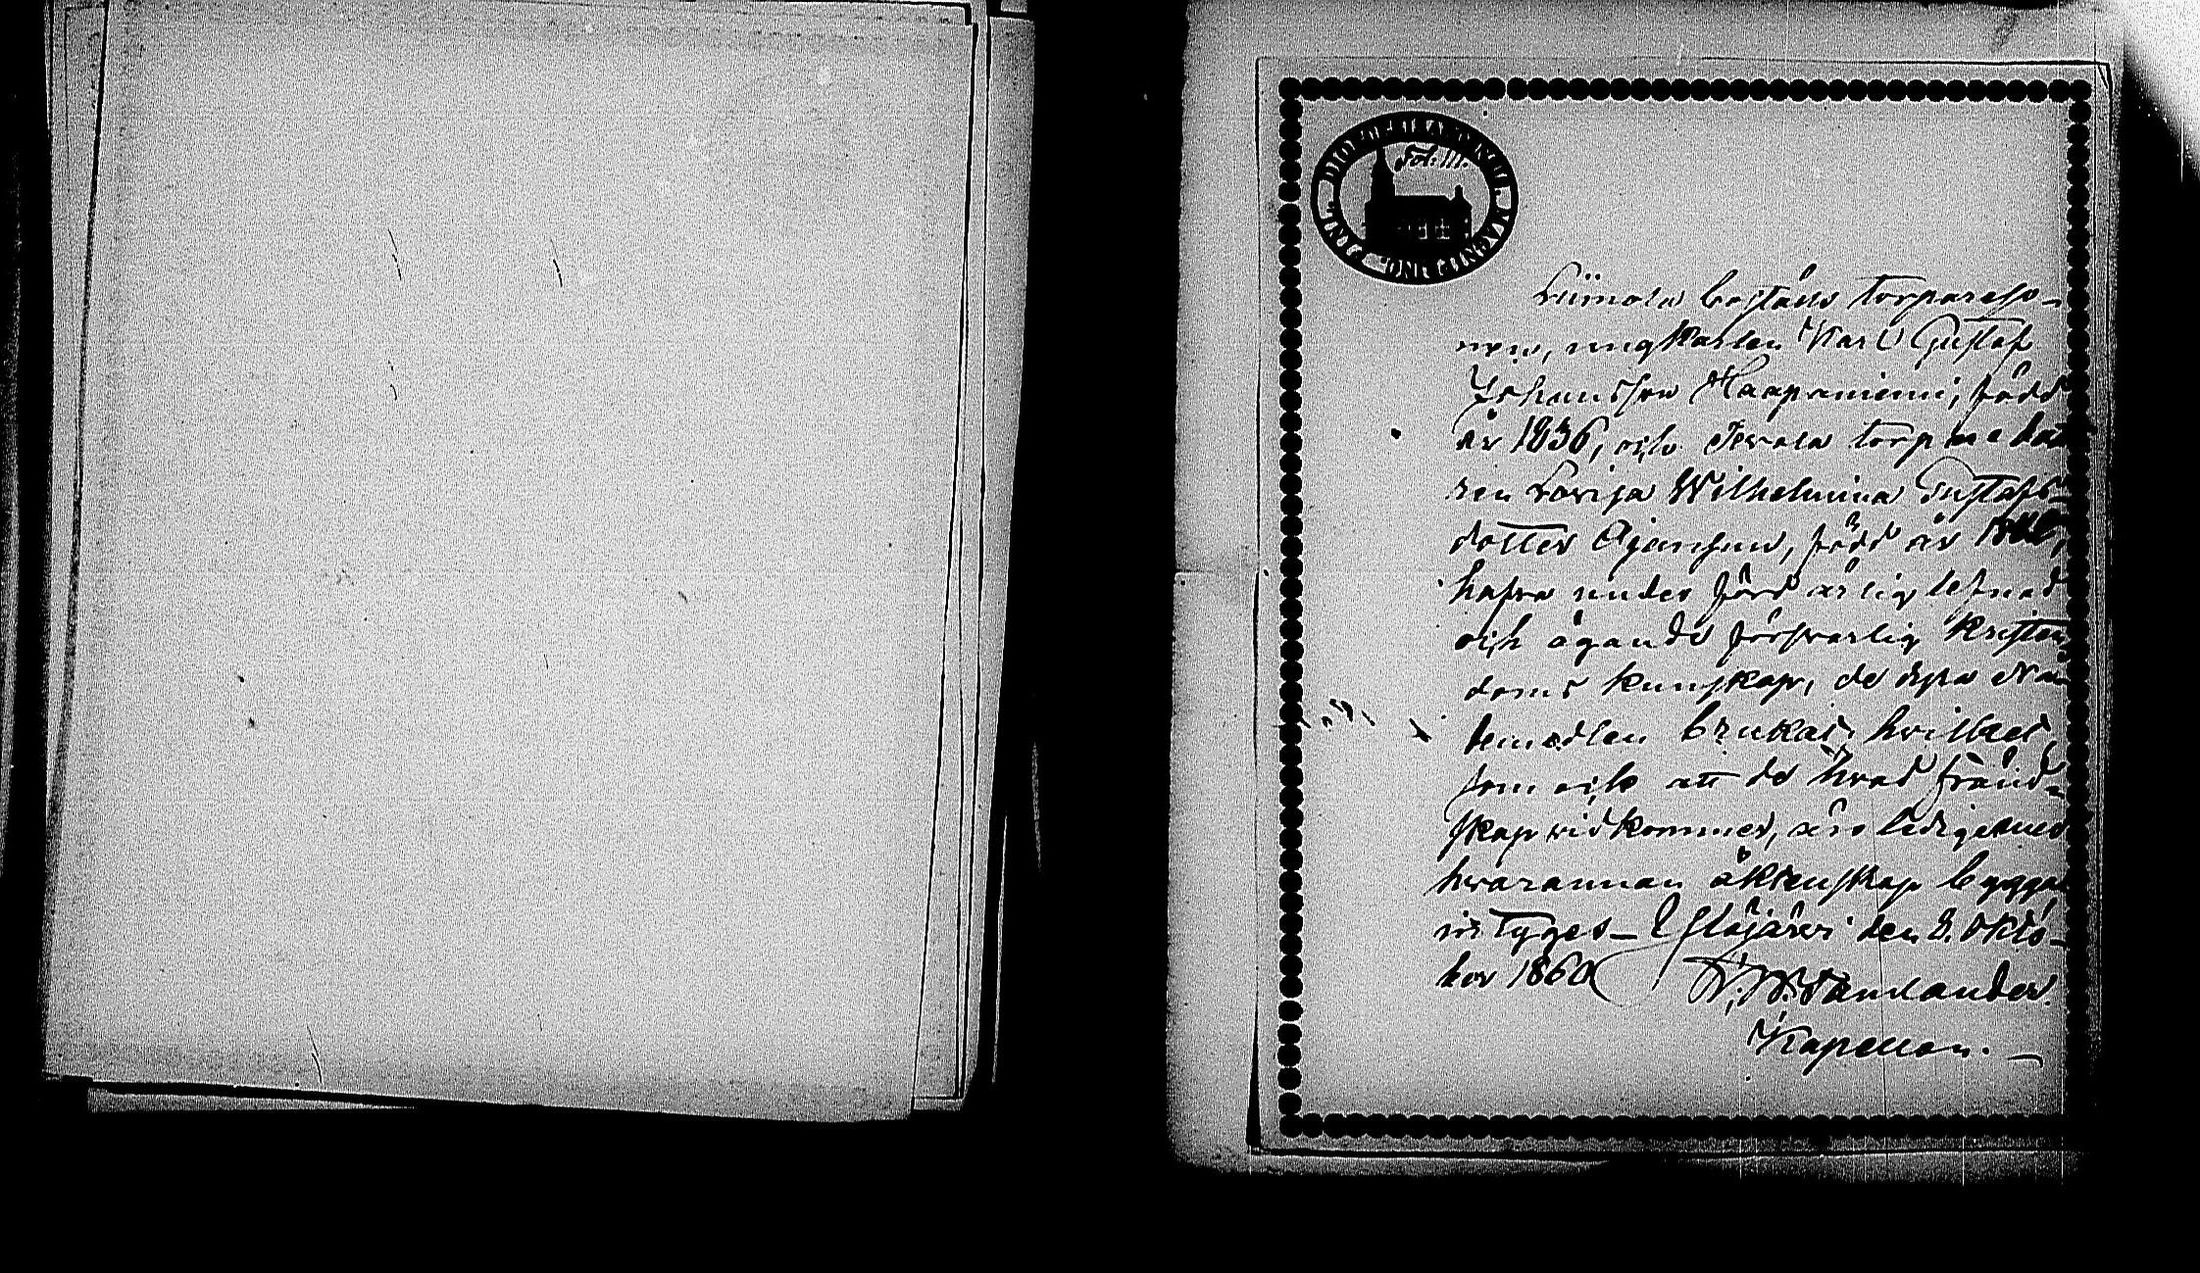 Fol. III.
Liimola boställs torpareso-
nen, ungkarlen Karl Gustaf
Johansson Haapaniemi, född
år 1836, och torparedot
ren Lovisa Wilhelmina Gustafs-
dotter Ojansuu, född år
hafva under förd ärlig lefnad
och ägande försvarlig kristen
doms kunskap, de dyra Nå
demedlen brukat, hvilket
som ock att de hvad fränd-
skap vidkommer, äro ledige med
hvarannan äktenskap bygga
intygas_ Eftöjärvi den 2. okto-
ber 1860
Kapellan. _